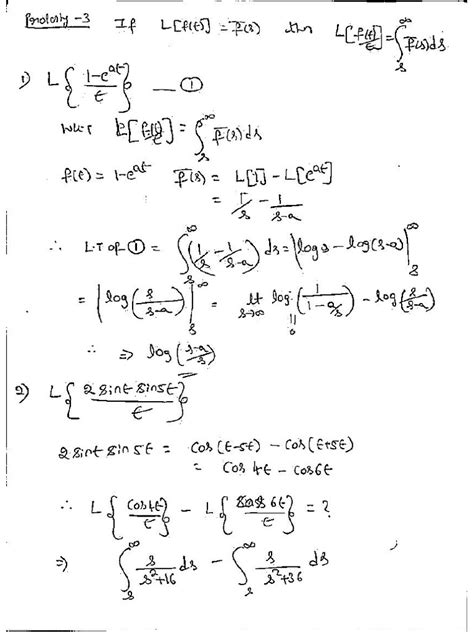 Property-3 If L[f(t)] = f̄(s) then L[f(t)/t] = ∫_s^∞ f̄(s) ds
1) L{(1-e^{at})/t} — ①
L[f(t)/t] = ∫_s^∞ f̄(s) ds
f(t) = 1-e^{at} f̄(s) = L[1] - L[e^{at}]
= 1/s - 1/(s-a)
∴ L.T of ① = ∫_s^∞ (1/s - 1/(s-a)) ds = |log s - log(s-a)|_s^∞
= |log(s/(s-a))|_s^∞ = lt_{s→∞} log(1/(1-a/s)) - log(s/(s-a))
||
0
∴ ⇒ log((s-a)/s)
2) L{2 sint sin5t/t}
2 sint sin 5t = cos(t-5t) - cos(t+5t)
= cos 4t - cos6t
∴ L{cos4t/t} - L{cos 6t/t} = ?
⇒) ∫_s^∞ s/(s²+16) ds - ∫_s^∞ s/(s²+36) ds